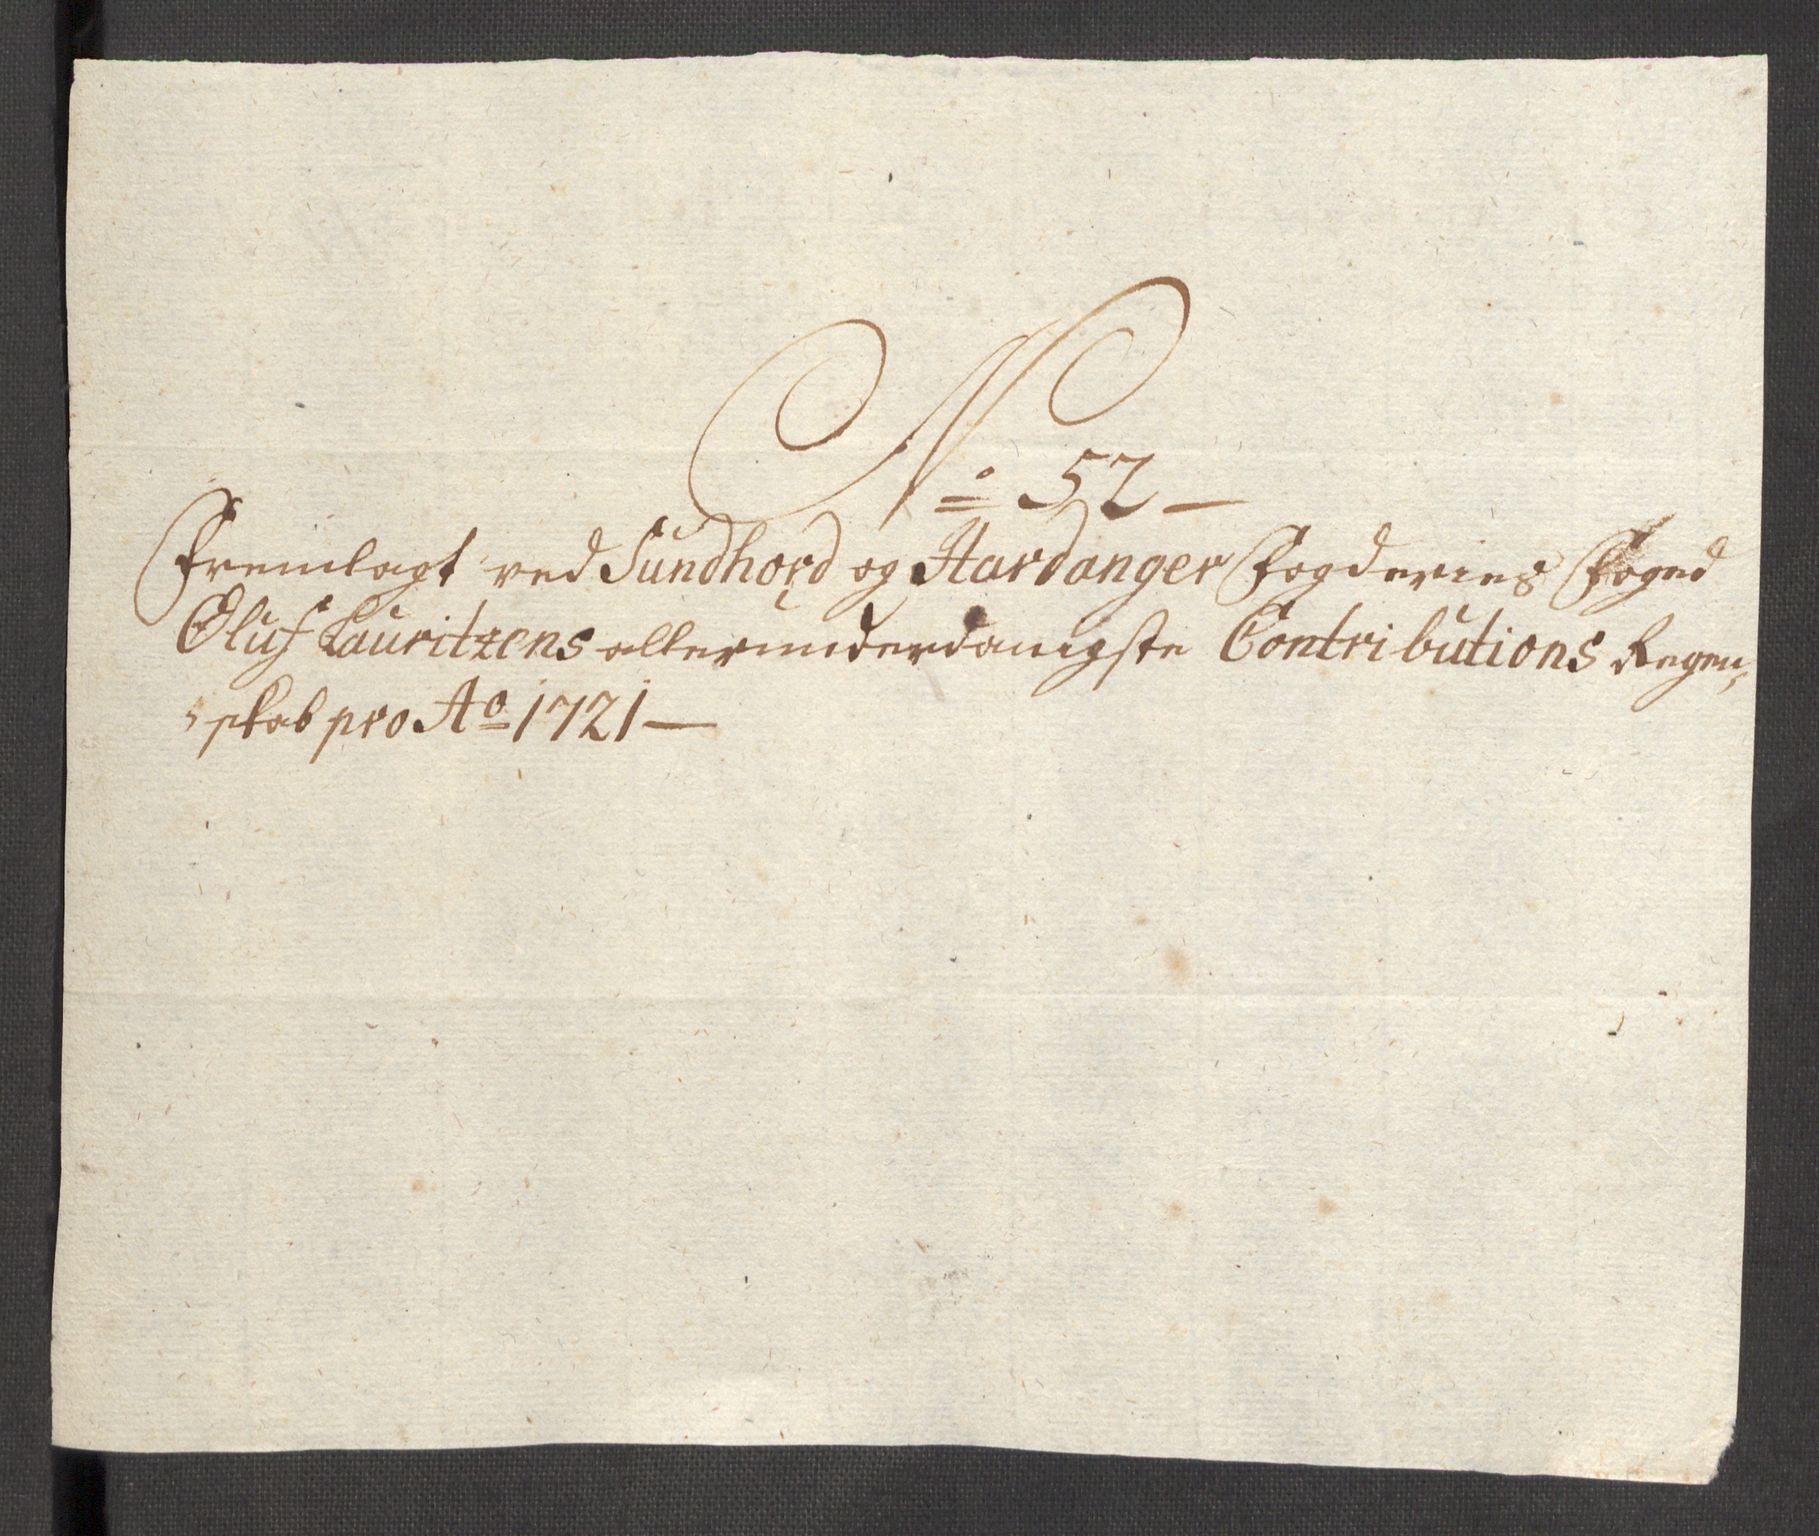 No 52 —
Fremlagt ved Sundhord og Hardanger Fogderies Foged
Oluf Lauritzens allerunderdanigste Contributions Regen,,
,skab pro Ao 1721 —